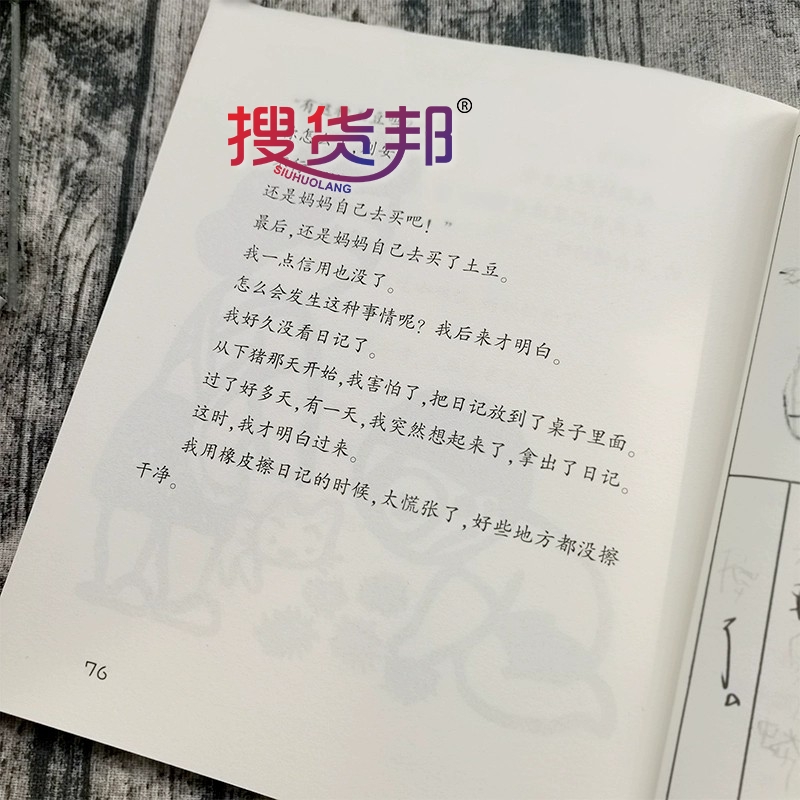 搜货邦®
SIUHUOLANG
还是妈妈自己去买吧！”
最后，还是妈妈自己去买了土豆。
我一点信用也没了。
怎么会发生这种事情呢？我后来才明白。
我好久没看日记了。
从下猪那天开始，我害怕了，把日记放到了桌子里面。
过了好多天，有一天，我突然想起来了，拿出了日记。
这时，我才明白过来。
我用橡皮擦日记的时候，太慌张了，好些地方都没擦
干净。
76
了。